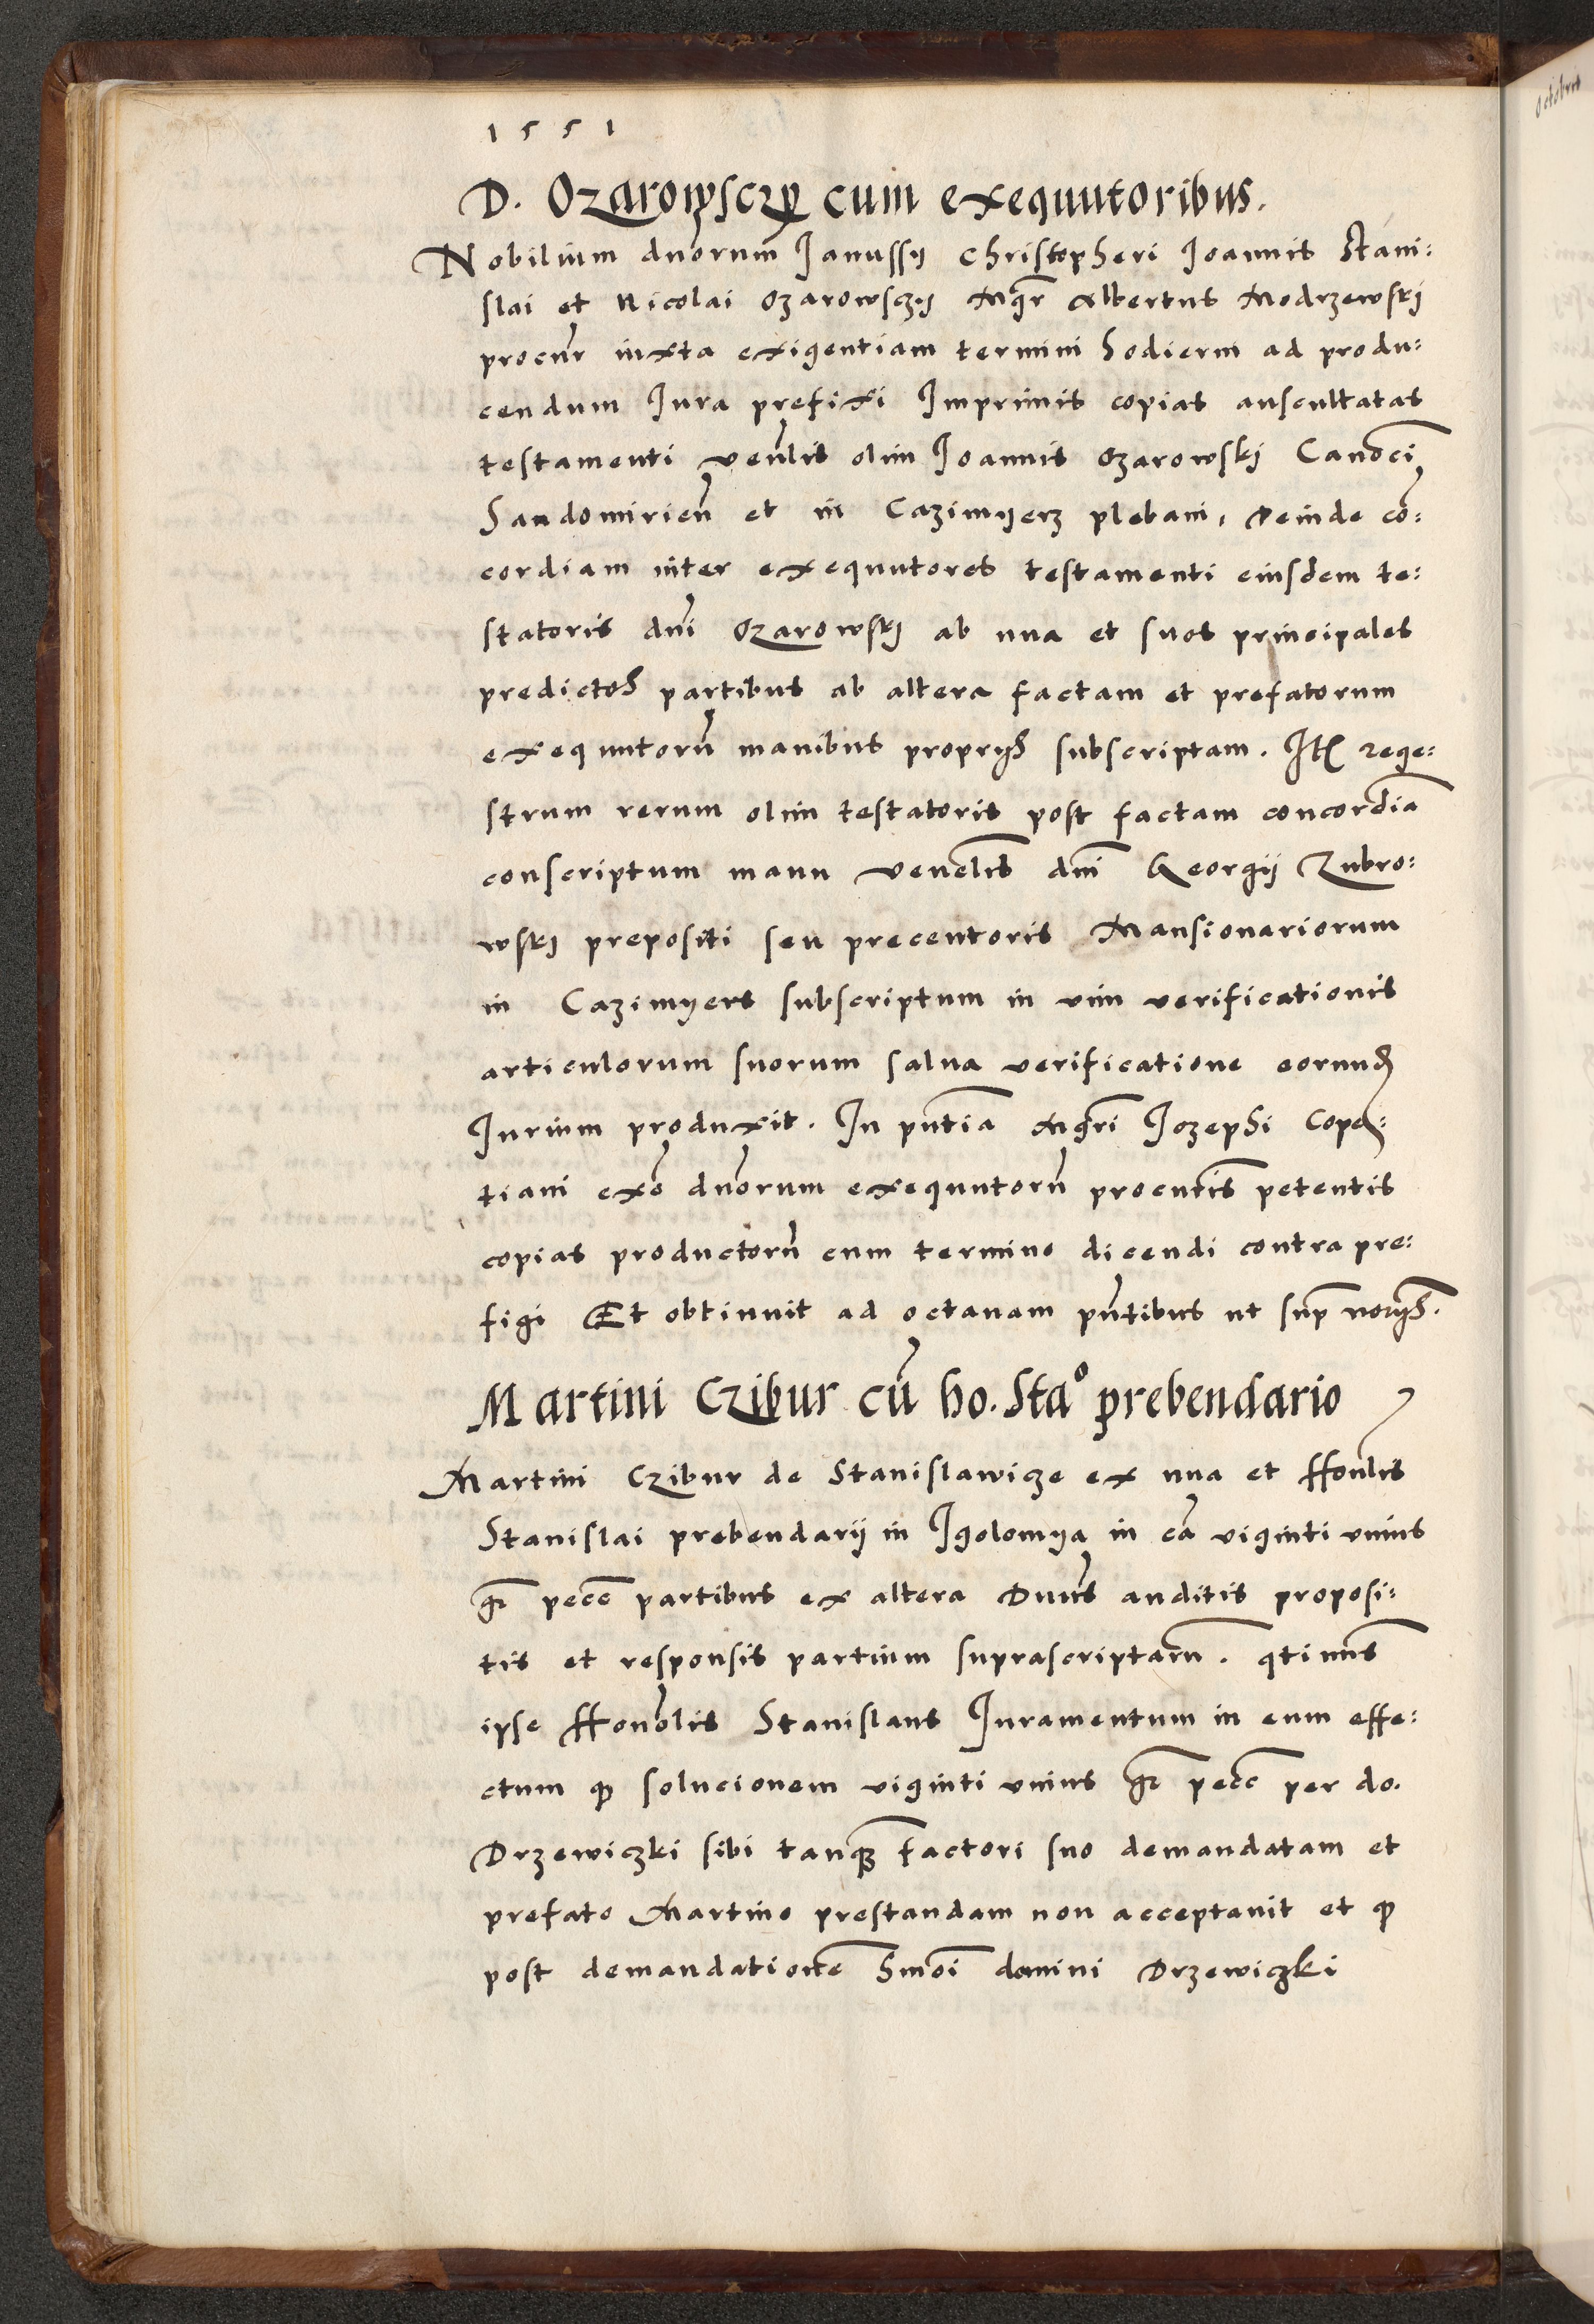 1551
D. Ozarowsczy cum exequutoribus.
Nobilium dnorum Janussij Christopheri Joannis Stani:
slai et Nicolai Ozarowsczij Mgr Albertus Modrzewskj
procur iuxta exigentiam termini hodierni ad produ:
cendum Jura prefixi Imprimis copias auscultatas
testamenti venlis olim Joannis Ozarowskj Canoci
Sandomirien et in Cazimyerz plebani, Deinde co:
cordiam inter exequutores testamenti eiusdem te:
statoris dni Ozarowskj ab una et suos principales
predictos partibus ab altera factam et prefatorum
exequutoru manibus proprijs subscriptam. Ite rege:
strum rerum olim testatoris post factam concordia
conscriptum manu venelis dni Georgij Zubro:
wskj prepositi seu precentoris Mansionariorum
in Cazimyers subscriptum in vim verificationis
articulorum suorum salva verificatione eorund
Jurium produxit. In pntia Mgri Jozephi
tiani exo dnorum exequutoru procutis petentis
copias productoru cum termino dicendi contra pre:
figi Et obtinuit ad octauam pntibus ut sup norijs.
Martini Czibur cu ho. Stao prebendario
Martini Czibur de Stanislawicze ex una et Honlis
Stanislai prebendarij in Igolomya in ca viginti unius
gr pecc partibus ex altera Dnus auditis proposi:
tis et responsis partium suprascriptaru. qtinus
ipse Honolis Stanislaus Juramentum in eum effe:
ctum qp solucionem viginti unius gr pecc per do.
Drzewiczki sibi tanq factori suo demandatam et
prefato Martino prestandam non acceptauit et qp
post demandatione hmoi domini Drzewiczki